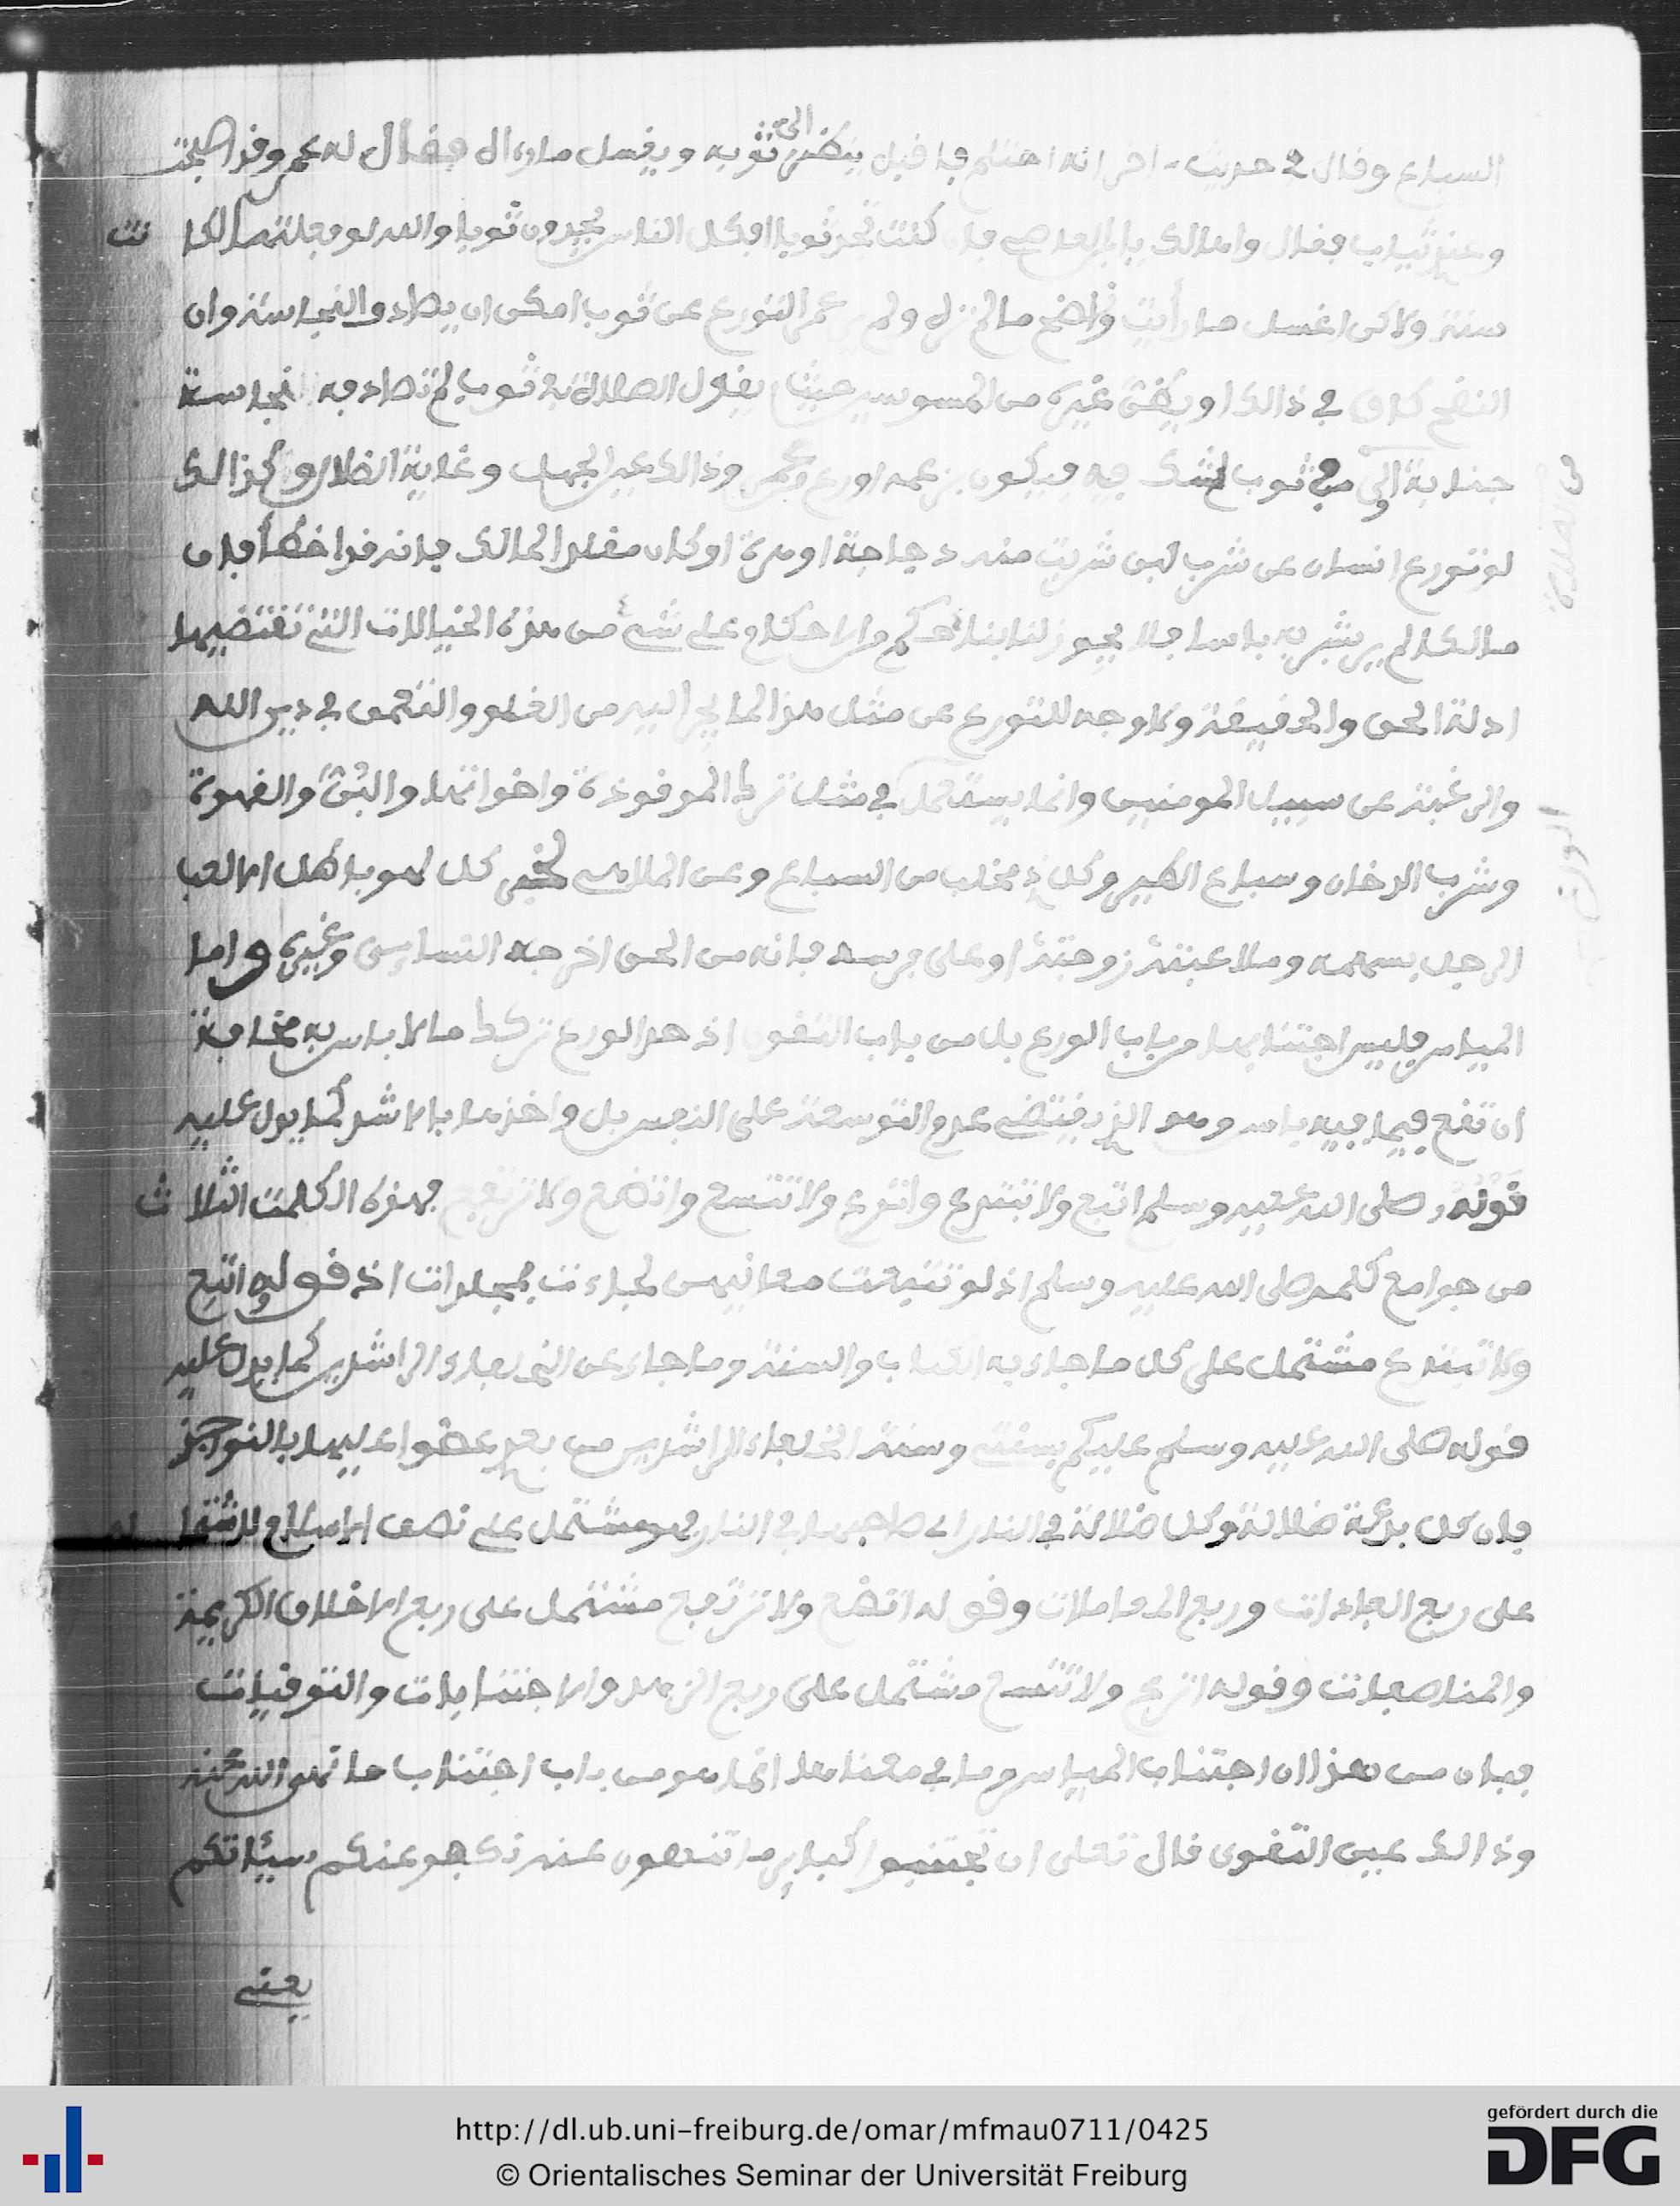 السباع وقال في حديث اخر انه احتلم فاقبل ينظر الى ثوبه ويغسل ما رءا له فقال له عمرو قد اصبحت
وعندنا ثياب فقال واها لك يا ابن العاصي فان كنت تجد ثوبا افكل الناس يجدون ثوبا والله لو فعلتها لكانت
سنة ولاكن اغسل ما رأيت وانضح ما لم تره ولم ير عمر التورع عن ثوب امكن ان يصادف النجاسة وان
النضح كاف في ذالك او يظن غيره من الموسوسين حيث يقول الصلاة في ثوب لم تصادفه نجاسة
جنابة اولى من ثوب شك فيه فيكون بزعمه اورع من عمر وذالك عين الجهل وغاية الضلال وكذالك
لو تورع انسان عن شرب لبن شربت منه دجاجة او هرة او كان مقلدا لمالك فانه قد اخطأ فان
مالكا لم ير بشربه باسا فلا يجوز لنا بناء حكم ولا احكام على شيء من هذه الخيالات التي تقتضيها
ادلة الحس والحقيقة ولا وجه للتورع عن مثل هذا لما يجر اليه من الغلو والتعمق في دين الله
والرغبة عن سبيل المومنين وانما يستعمل في مثل ترك الموقوذة واخواتها والبن والقهوة
وشرب الدخان وسباع الطير وكل ذي مخلب من السباع وعن الملاهي لخبر كل لهو باطل الا لعب
الرجل بسهمه وملاعبته زوجته او على فرسه فانه من الحق اخرجه النساءي وغيره واما
المياسر فليس اجتنابها من باب الورع بل من باب التقوى اذ حد الورع ترك ما لا باس به مخافة
ان تقع فيما فيه باس وهو الذي يقتضي عدم التوسعة على النفس بل واخذها بالاشد كما يدل عليه
قوله صلى الله عليه وسلم اتبع ولا تبتدع واتورع ولا تتسع واتضع ولا ترتفع فهذه الكلمت الثلاث
من جوامع كلمه صلى الله عليه وسلم اذ لو تتبعت معانيهن لجاءت بمجلدات اذ قوله اتبع
ولا تبتدع مشتمل على كل ما جاء به الكتاب والسنة وما جاء عن الخلفاء الراشدين كما يدل عليه
قوله صلى الله عليه وسلم عليكم بسنتي وسنة الخلفاء الراشدين من بعدي عضوا عليها بالنواجذ
فان كل بدعة ضلالة وكل ضلالة في النار اي صاحبها في النار فهو مشتمل على نصف الاسلام لاشتماله
على ربع العبادات وربع المعاملات وقوله اتضع ولا ترتفع مشتمل على ربع الاخلاق الكريمة
والمناصفات وقوله اتورع ولا تتسع مشتمل على ربع الزهد والاجتنابات والتوقيات
فبان من هذا ان اجتناب المياسر وما في معناها انما هو من باب اجتناب ما نهى الله عنه
وذالك عين التقوى قال تعلى ان تجتنبوا كباير ما تنهون عنه نكفر عنكم سيئاتكم
يعني
http://dl.ub.uni-freiburg.de/omar/mfmau0711/0425
© Orientalisches Seminar der Universität Freiburg
gefördert durch die
DFG